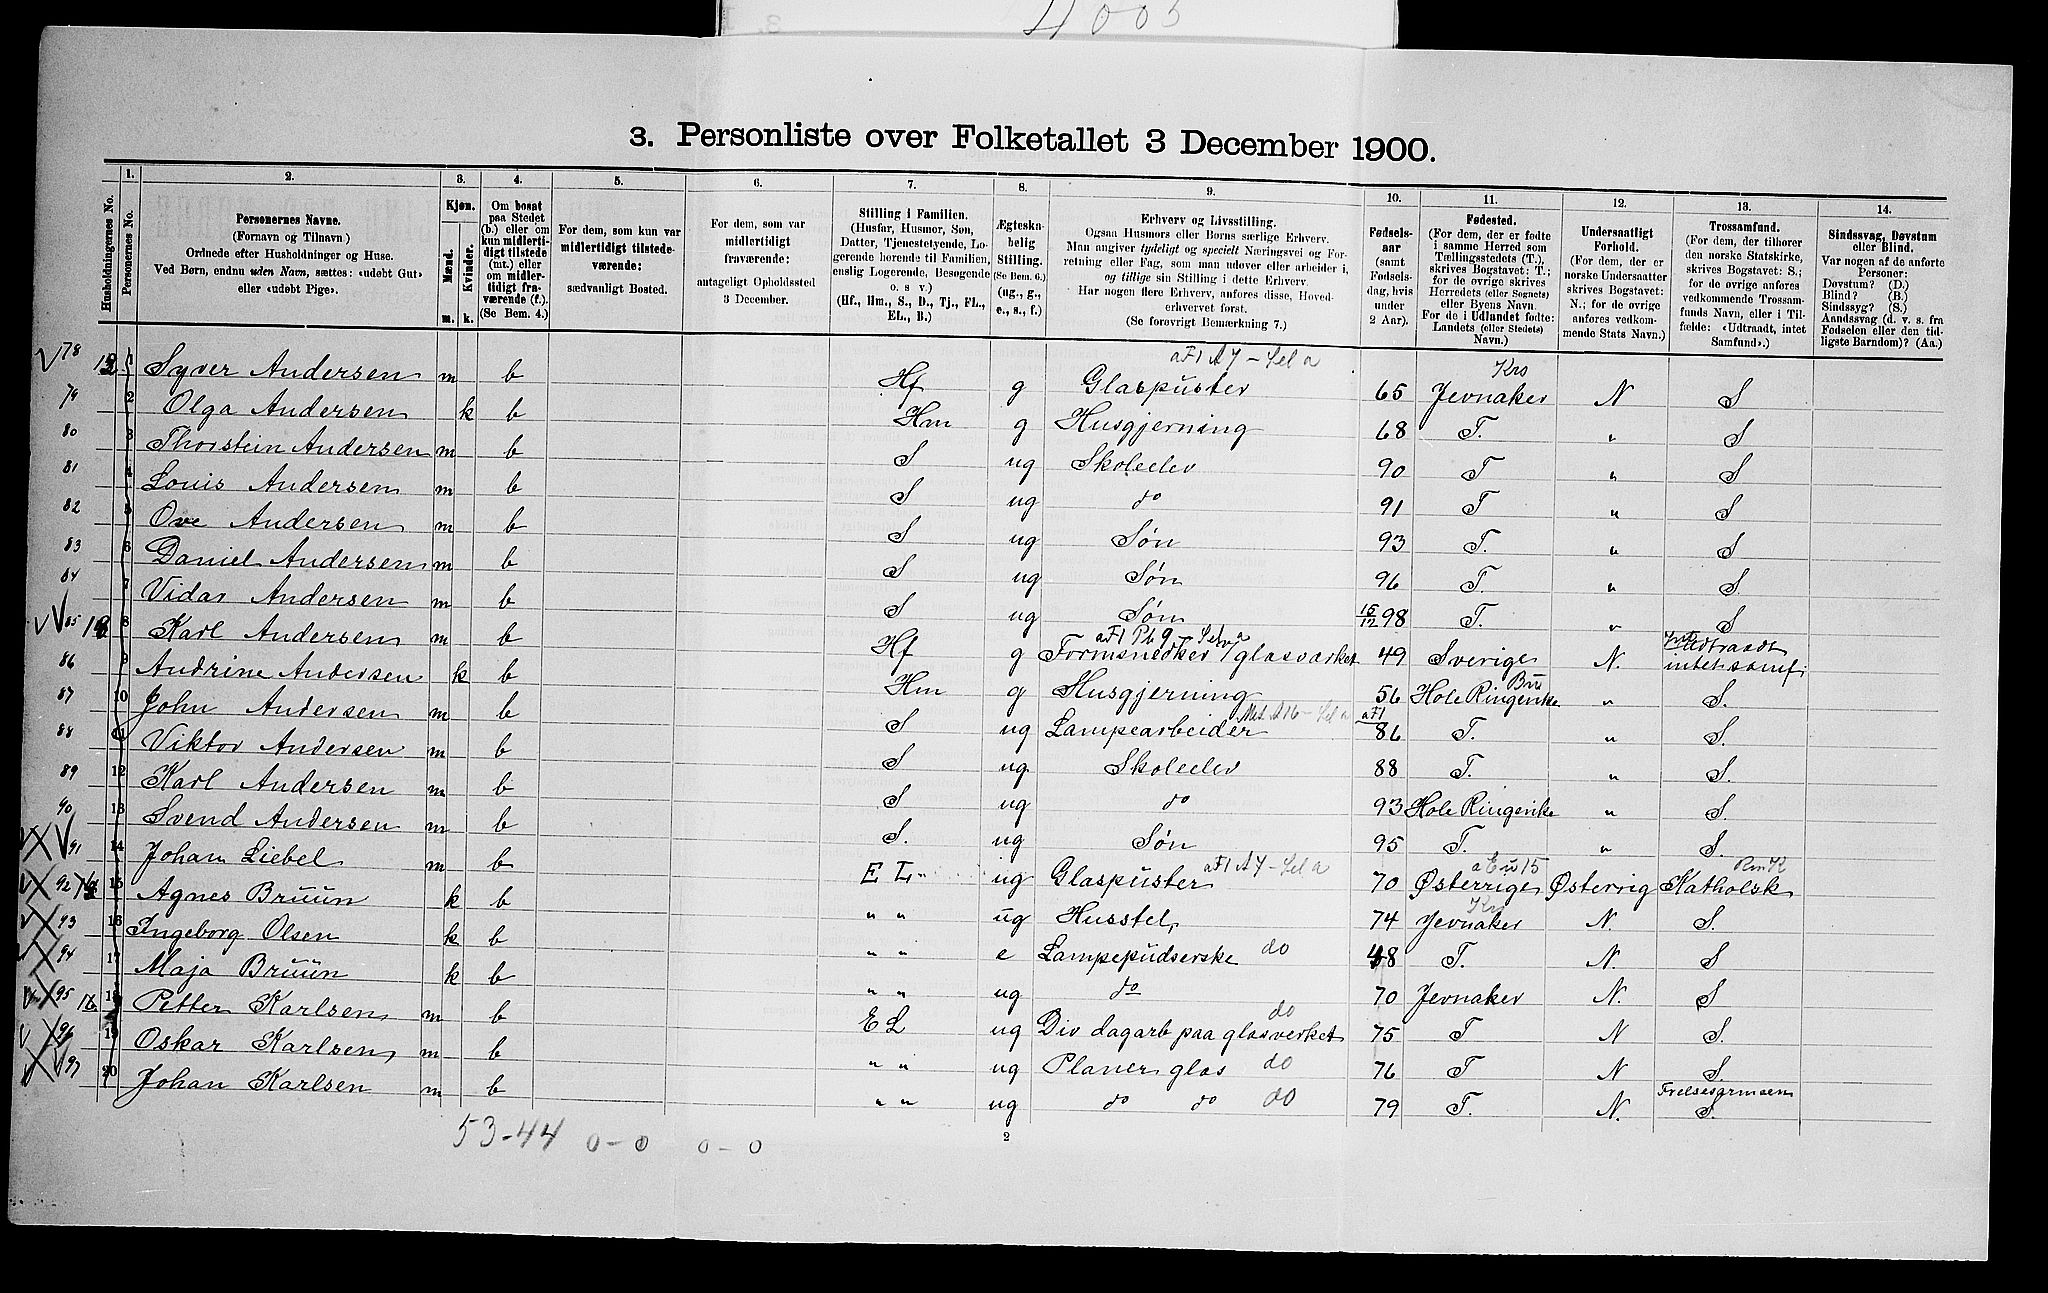 4005
3. Personliste over Folketallet 3 December 1900.
Husholdningernes No.
1. Personernes No.
2. Personernes Navne. (Fornavn og Tilnavn) Ordnede efter Husholdninger og Huse. Ved Børn, endnu uden Navn, sættes: «udøbt Gut» eller «udøbt Pige».
3. Kjøn. Mænd. Kvinder. m. k.
4. Om bosat paa Stedet (b.) eller om kun midlertidigt tilstede (mt.) eller om midlertidigt fraværende (f.). (Se Bem. 4.)
5. For dem, som kun var midlertidigt tilstedeværende: sædvanligt Bosted.
6. For dem, som var midlertidigt fraværende: antageligt Opholdssted 3 December.
7. Stilling i Familien. (Husfar, Husmor, Søn, Datter, Tjenestetyende, Logerende hørende til Familien, enslig Logerende, Besøgende o. s v.) (Hf., Hm., S., D., Tj., FL., EL., B.)
8. Ægteskabelig Stilling. (Se Bem. 6.) (ug., g., e., s., f.)
9. Erhverv og Livsstilling. Ogsaa Husmors eller Børns særlige Erhverv. Man angiver tydeligt og specielt Næringsvei og Forretning eller Fag, som man udøver eller arbeider i, og tillige sin Stilling i dette Erhverv. Har nogen flere Erhverv, anføres disse, Hovederhvervet først. (Se forøvrigt Bemærkning 7.)
10. Fødselsaar (samt Fødselsdag, hvis under 2 Aar).
11. Fødested. (For dem, der er fødte i samme Herred som Tællingsstedets (T.), skrives Bogstavet: T.; for de øvrige skrives Herredets (eller Sognets) eller Byens Navn. For de i Udlandet fødte: Landets (eller Stedets) Navn.)
12. Undersaatligt Forhold. (For dem, der er norske Undersaatter skrives Bogstavet: N.; for de øvrige anføres vedkommende Stats Navn.)
13. Trossamfund. (For dem, der tilhører den norske Statskirke, skrives Bogstavet: S.; for de øvrige anføres vedkommende Trossamfunds Navn, eller i Tilfælde: «Udtraadt, intet Samfund».)
14. Sindssvag, Døvstum eller Blind. Var nogen af de anførte Personer: Døvstum? (D.) Blind? (B.) Sindssyg? (S.) Aandssvag (d. v. s. fra Fødselen eller den tidligste Barndom)? (Aa.)
78 1 Syver Andersen m b Hf g Glaspuster aF1 A7 - Sel a 65 Jevnaker Krs N S
79 2 Olga Andersen k b Hm g Husgjerning 68 T. " S
80 3 Thorstein Andersen m b S ug Skoleelev 90 T " S
81 4 Louis Andersen m b S ug do 91 T " S
82 5 Ove Andersen m b S ug Søn 93 T. " S
83 6 Daniel Andersen m b S ug Søn 96 T. " S.
84 7 Vidar Andersen m b S ug Søn 15/12 98 T. " S
85 8 Karl Andersen m b Hf g Formsnedker v/ glasværket 49 Sverige N. Udtraadt intet samf
86 9 Andrine Andersen k b Hm g Husgjerning 56 Hole Ringerike Bu " S.
87 10 John Andersen m b S ug Lampearbeider aF1 86 T. " S.
88 11 Viktor Andersen m b S ug. Skoleelev 88 T. " S.
89 12 Karl Andersen m b S ug do 93 Hole Ringerike " S.
90 13 Svend Andersen m b S. ug Søn 95 T. " S.
91 14 Johan Liebel m b E L. ug Glaspuster aF1 A7 - Sel a 70 Østerrige Østerrig Katholsk Rm K
92 15 Agnes Bruun k b " " ug Husstel, 74 Jevnaker Krs N. S.
93 16 Ingeborg Olsen k b " " e Lampepudserske do 48 T. N. S
94 17 Maja Bruun k b " " ug do 70 Jevnaker N. S
95 18 Petter Karlsen m b E L ug Div dagarb paa glasverket do 75 T N S.
96 19 Oskar Karlsen m b " " ug Planer glas do 76 T N S.
97 20 Johan Karlsen m b " " ug do do do 79 T. N. Frelsesarmeen S.
53-44 0-0 0-0
2